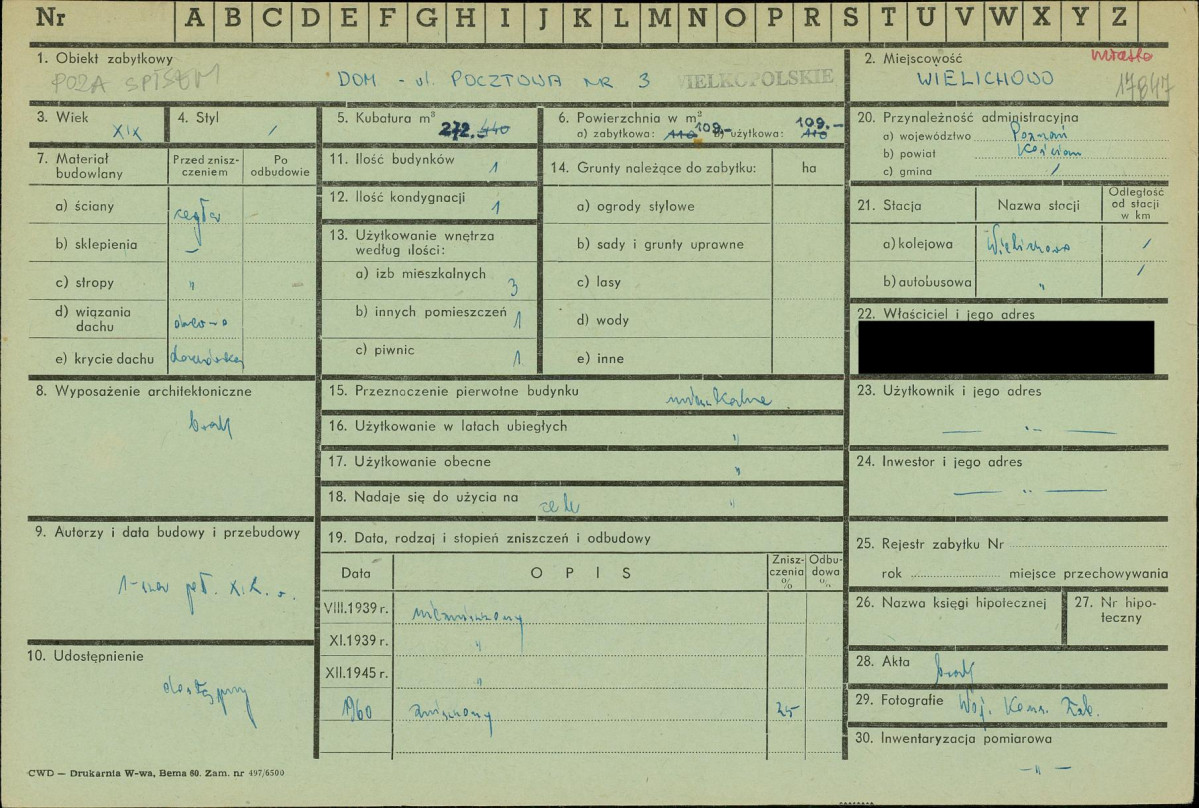 Nr A B C D E F G H I J K L M N O P R S T U V W X Y Z
1. Obiekt zabytkowy
POZA SPISEM
DOM - ul. POCZTOWA NR 3 WIELKOPOLSKIE
2. Miejscowość
miasto
WIELICHOWO
17847
3. Wiek
XIX
4. Styl
/
5. Kubatura m³
272.- 440
6. Powierzchnia w m²
a) zabytkowa: 110 109.- b) użytkowa: 109.- 110
20. Przynależność administracyjna
a) województwo Poznań
b) powiat Kościan
c) gmina /
7. Materiał budowlany
Przed znisz-
czeniem
Po
odbudowie
a) ściany cegła
b) sklepienia
c) stropy "
d) wiązania
dachu drewno
e) krycie dachu
11. Ilość budynków 1
12. Ilość kondygnacji 1
13. Użytkowanie wnętrza
według ilości:
a) izb mieszkalnych 3
b) innych pomieszczeń 1
c) piwnic 1
14. Grunty należące do zabytku: ha
a) ogrody stylowe
b) sady i grunty uprawne
c) lasy
d) wody
e) inne
21. Stacja
Nazwa stacji
Odległość
od stacji
w km
a) kolejowa Wielichowo /
b) autobusowa " /
22. Właściciel i jego adres
8. Wyposażenie architektoniczne
brak
15. Przeznaczenie pierwotne budynku mieszkalne
16. Użytkowanie w latach ubiegłych "
17. Użytkowanie obecne "
18. Nadaje się do użycia na cele "
23. Użytkownik i jego adres
— " —
24. Inwestor i jego adres
— " —
9. Autorzy i data budowy i przebudowy
1-sza poł. XIX w.
10. Udostępnienie
dostępny
19. Data, rodzaj i stopień zniszczeń i odbudowy
Data
O P I S
Znisz-
czenia
%
Odbu-
dowa
%
VIII.1939 r. niezniszczony
XI.1939 r. "
XII.1945 r. "
1960 zniszczony 25
25. Rejestr zabytku Nr
rok miejsce przechowywania
26. Nazwa księgi hipotecznej
27. Nr hipo-
teczny
28. Akta brak
29. Fotografie Woj. Kons. Zab.
30. Inwentaryzacja pomiarowa
— " —
CWD — Drukarnia W-wa, Bema 60. Zam. nr 497/6500